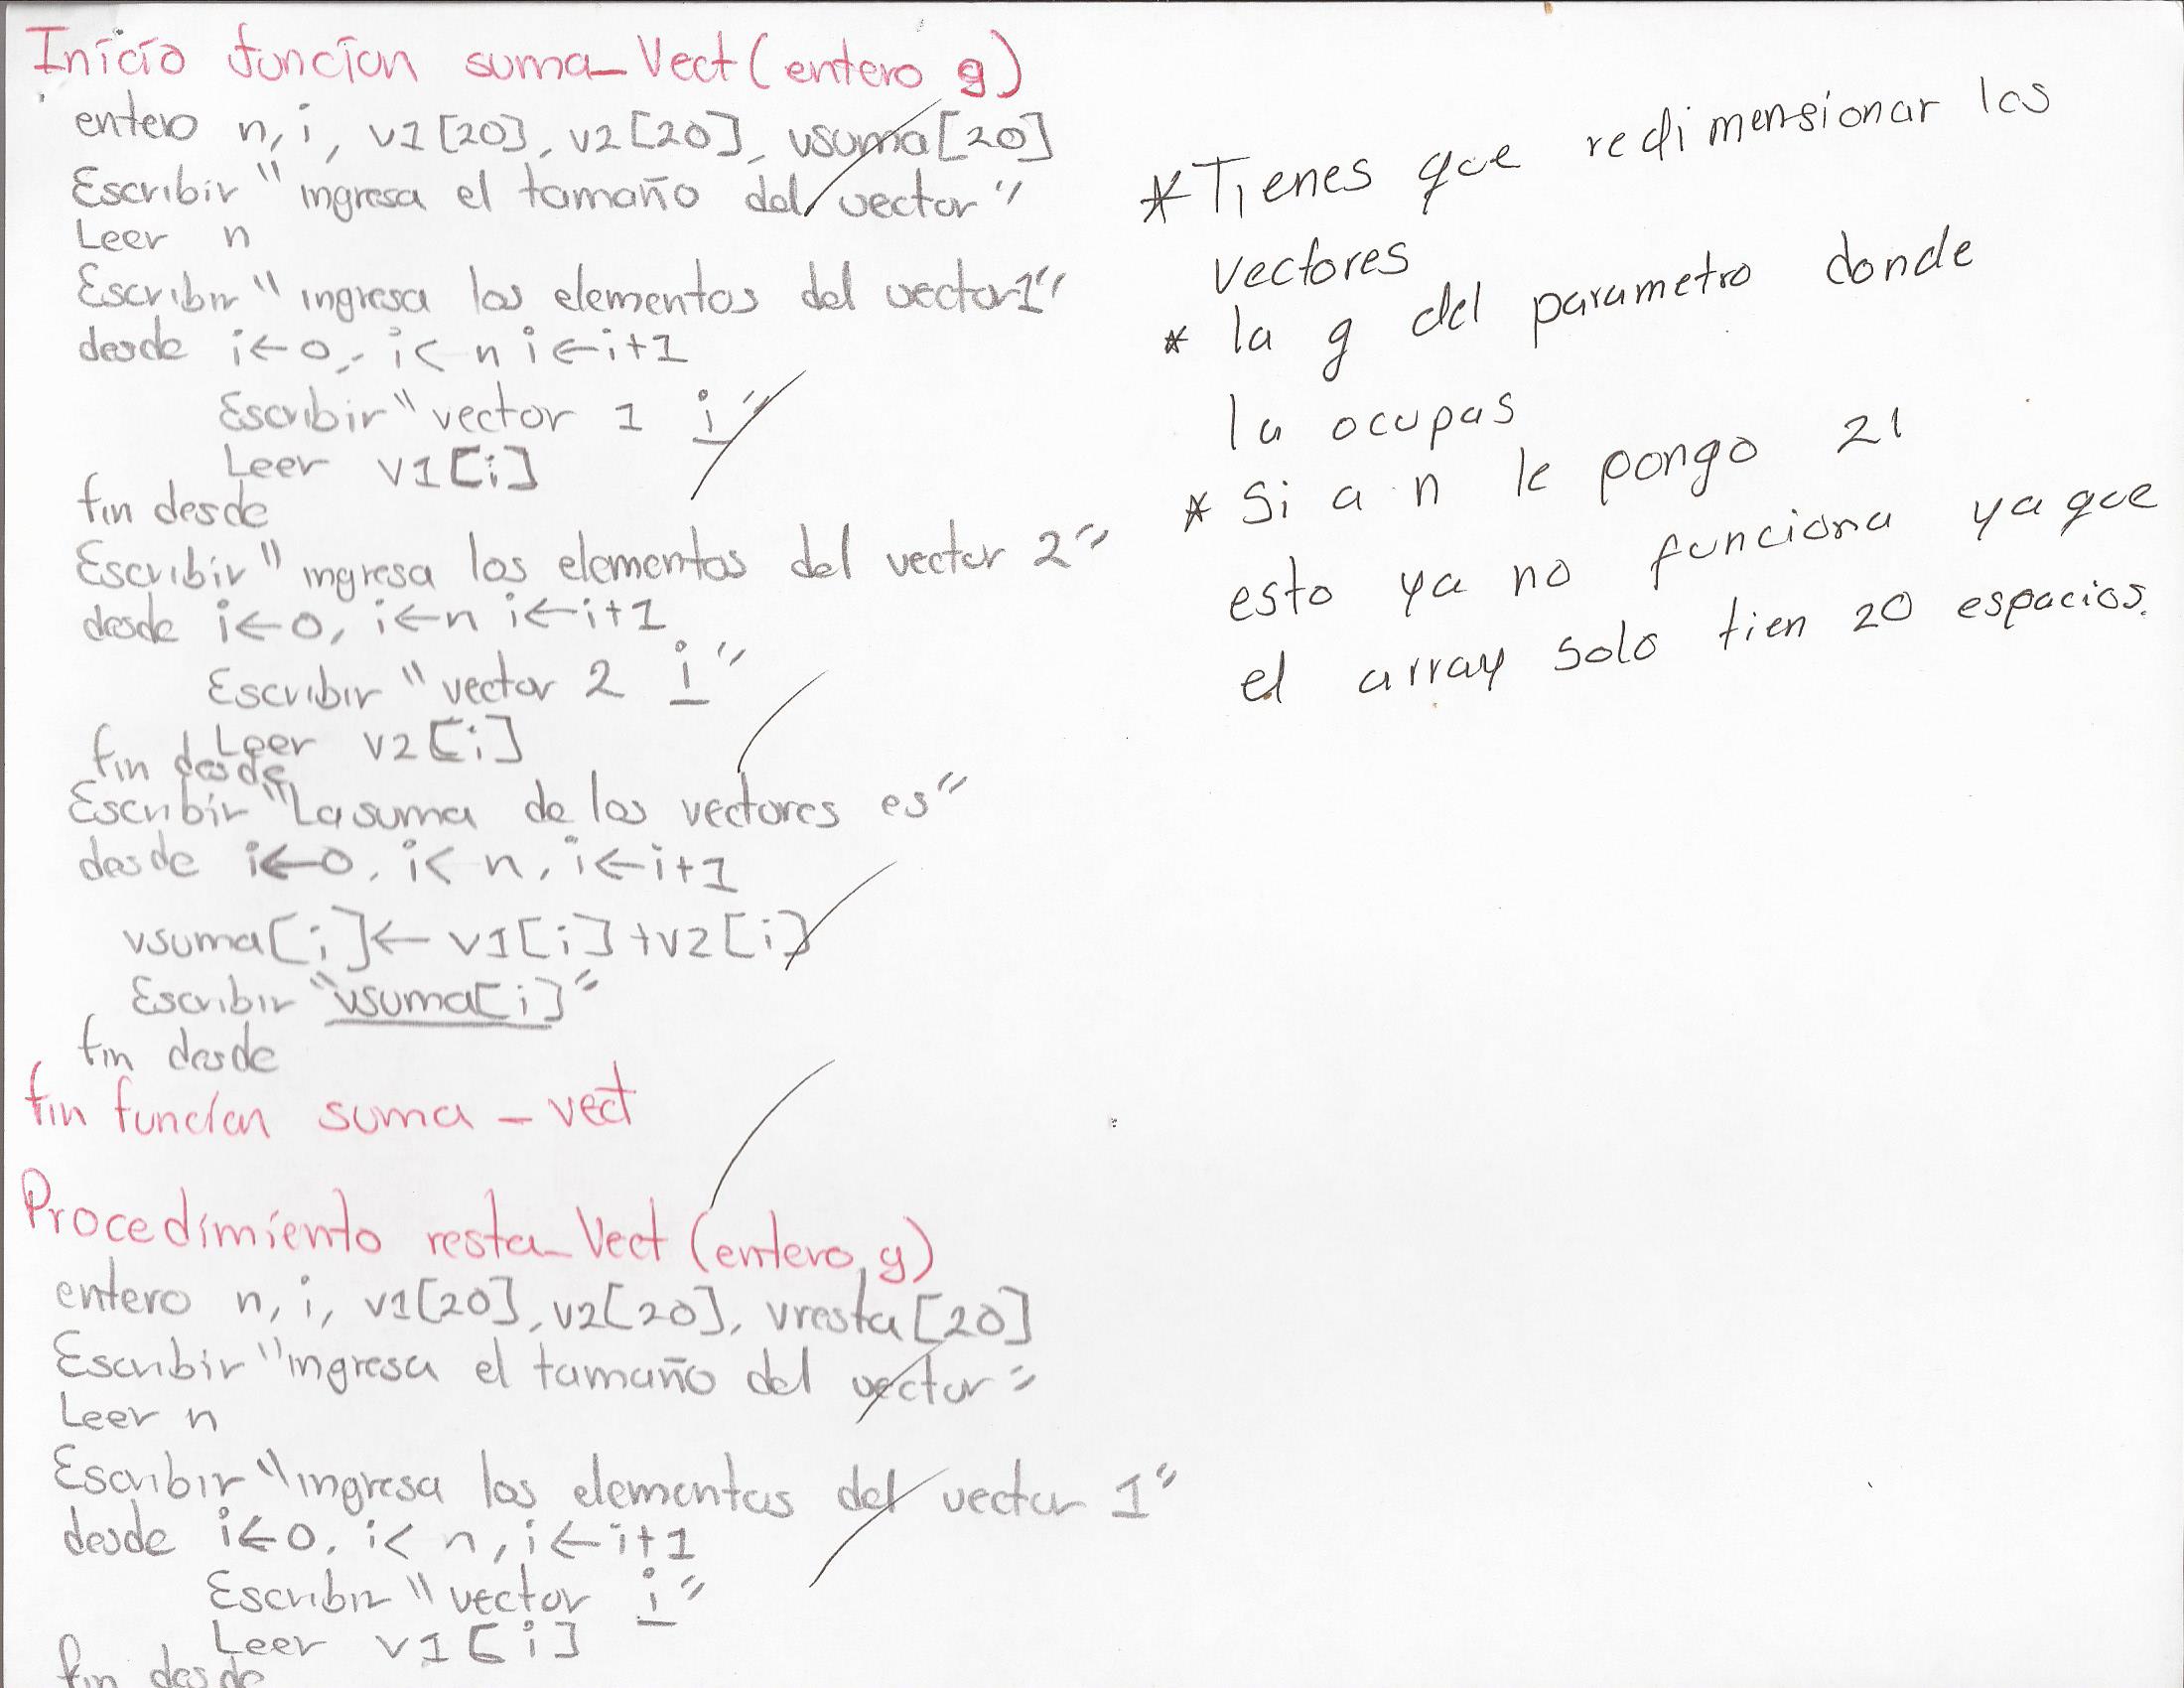 Inicio funcion suma_Vect(entero g)
entero n, i, v1[20], v2[20], vsuma[20]
Escribir "ingresa el tamaño del vector"
Leer n
Escribir "ingresa los elementos del vector1"
desde i←0, i< n i←i+1
Escribir "vector 1 i"
Leer v1[i]
fin desde
Escribir "ingresa los elementos del vector 2"
desde i←0, i←n i←i+1
Escribir "vector 2 i"
Leer v2[i]
fin desde
Escribir "La suma de los vectores es"
desde i←0, i< n, i←i+1
vsuma[i]← v1[i]+v2[i]
Escribir "vsuma[i]"
fin desde
fin funcion suma_vect
Procedimiento resta_Vect(entero g)
entero n, i, v1[20], v2[20], vresta[20]
Escribir "ingresa el tamaño del vector"
Leer n
Escribir "ingresa los elementos del vector 1"
desde i←0, i< n, i←i+1
Escribir "vector i"
Leer v1[i]
fin desde
*Tienes que redimensionar los
vectores
* la g del parametro donde
la ocupas
* Si a n le pongo 21
esto ya no funciona ya que
el array solo tien 20 espacios.